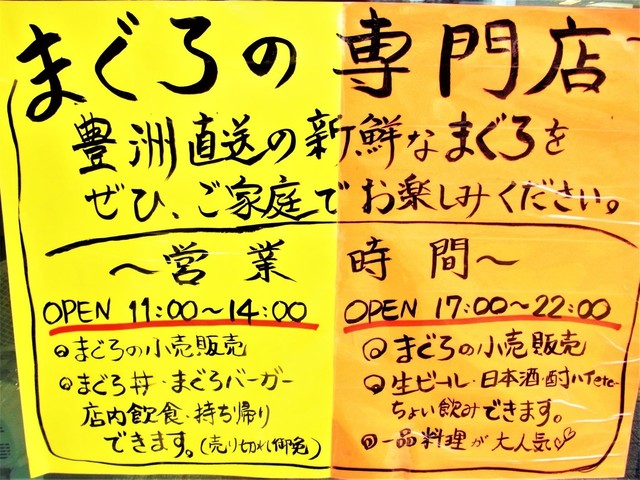 まぐろの専門店
豊洲直送の新鮮なまぐろを
ぜひ、ご家庭でお楽しみください。
～営業時間～
OPEN 11:00～14:00
まぐろの小売販売
まぐろ丼・まぐろバーガー
店内飲食・持ち帰り
できます。(売り切れ御免)
OPEN 17:00～22:00
まぐろの小売販売
生ビール・日本酒・酎ハイetc
ちょい飲みできます。
一品料理が大人気♡♡